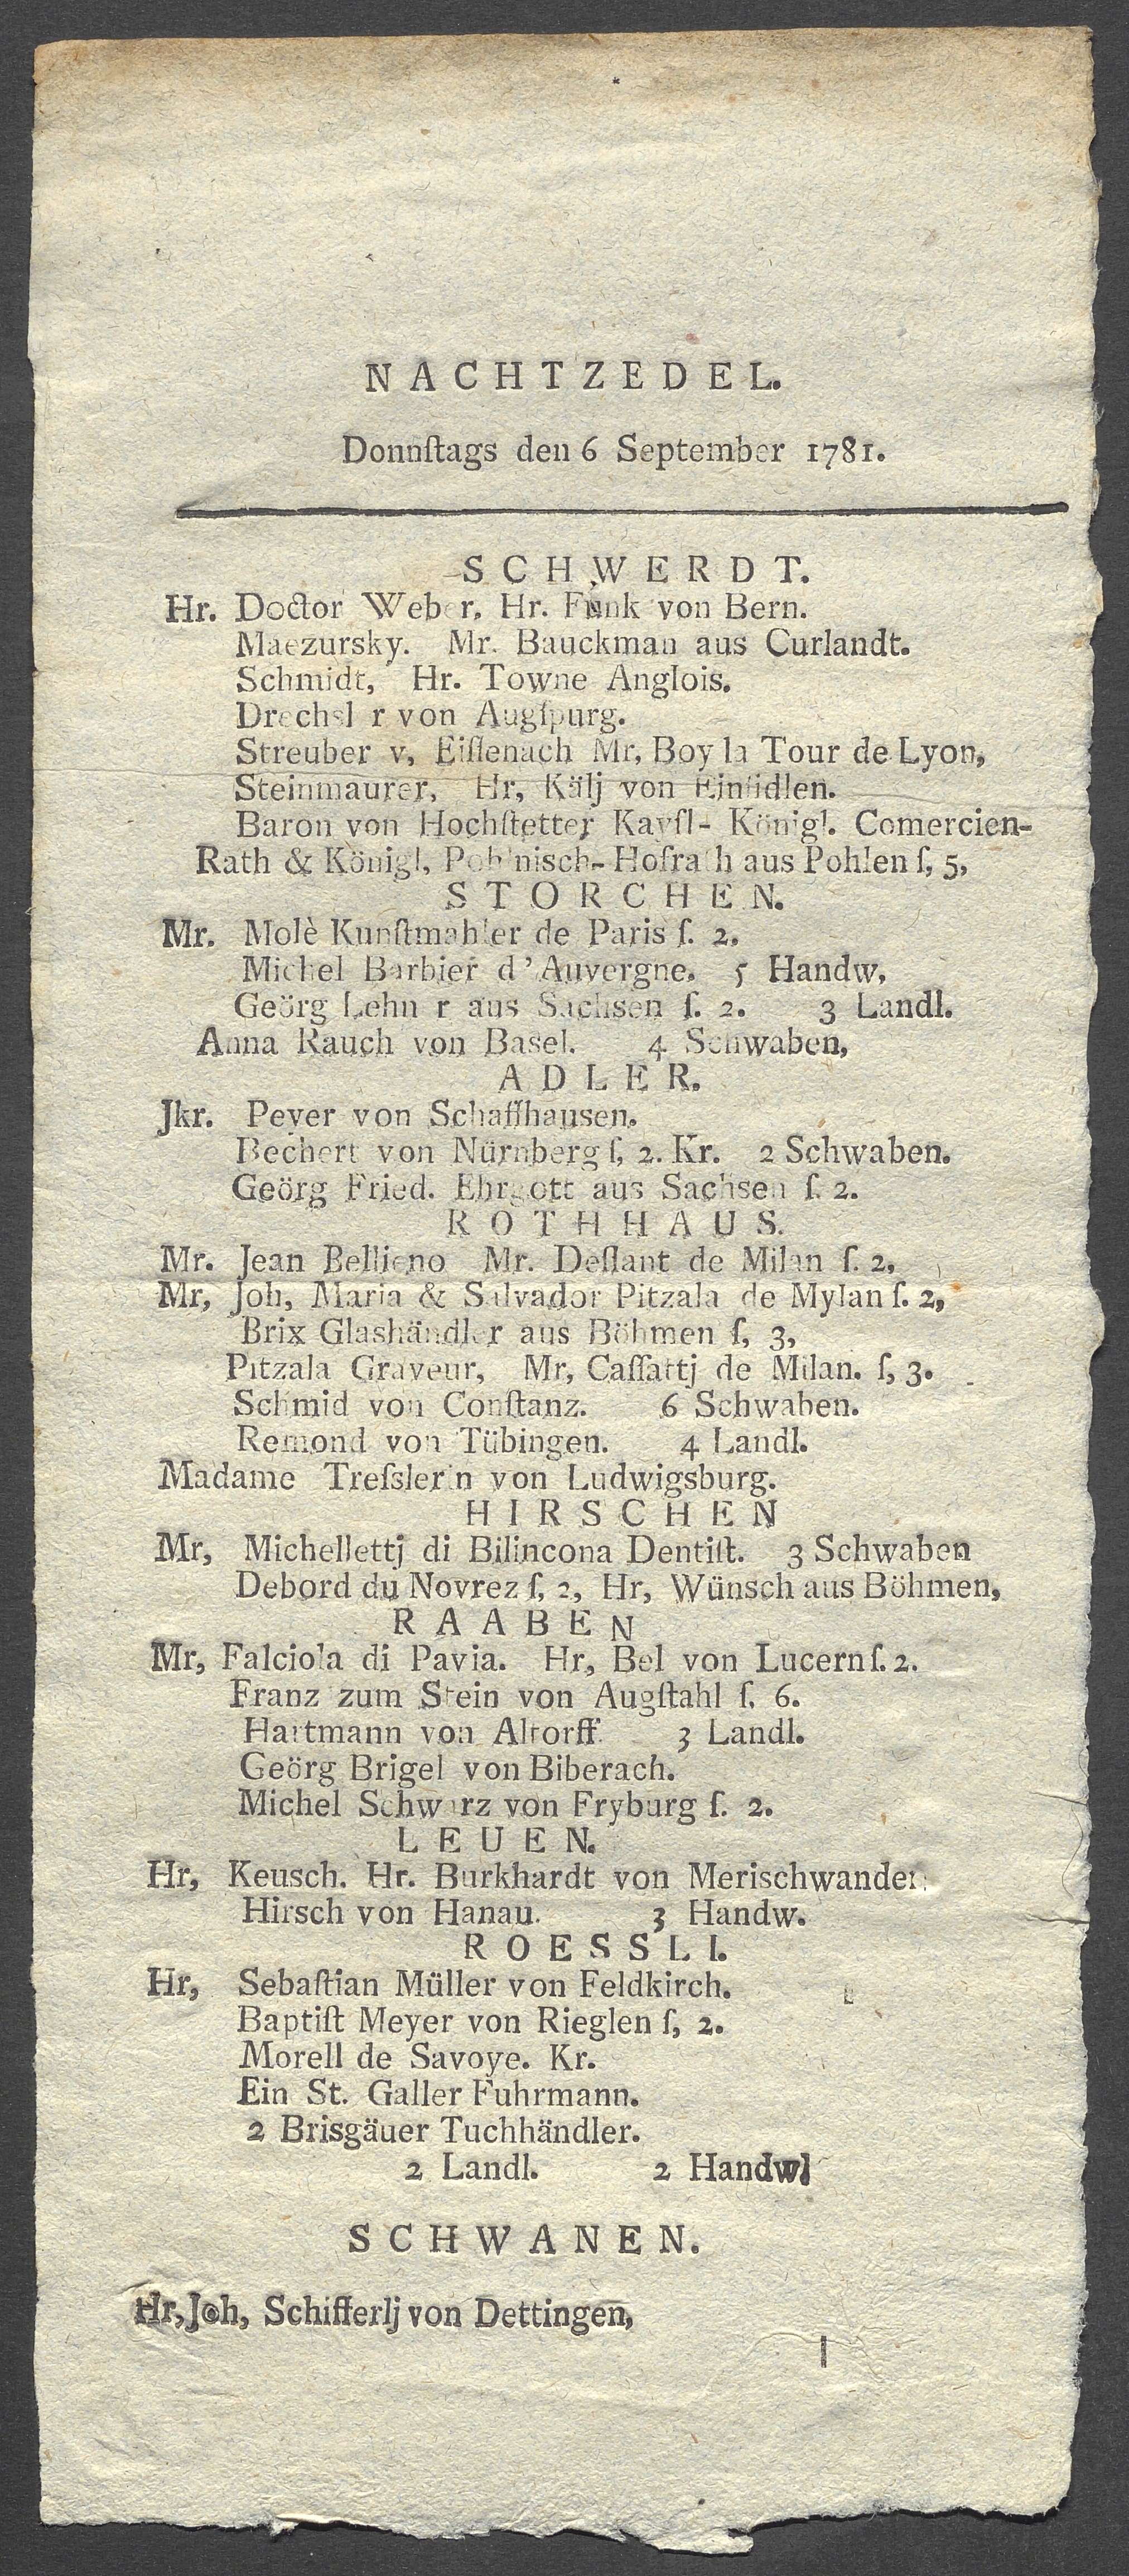 NACHTZEDEL.
Donnſtags den 6 September 1781.
SCHWERDT.
Hr. Doctor Weber, Hr. Funk von Bern.
Maezursky. Mr. Bauckman aus Curlandt.
Schmidt, Hr. Towne Anglois.
Drechsl r von Augſpurg.
Streuber v, Eiſſenach Mr, Boy la Tour de Lyon,
Steinmaurer, Hr, Kälj von Einſidlen.
Baron von Hochſtetter Kayſl- Königl. Comercien-
Rath & Königl, Pohlnisch- Hofrath aus Pohlen ſ, 5,
STORCHEN.
Mr. Molè Kunſtmahler de Paris ſ. 2.
Michel Barbier d'Auvergne. 5 Handw,
Geörg Lehn r aus Sachsen ſ. 2. 3 Landl.
Anna Rauch von Basel. 4 Schwaben,
ADLER.
Jkr. Peyer von Schaffhausen.
Bechert von Nürnberg ſ, 2. Kr. 2 Schwaben.
Geörg Fried. Ehrgott aus Sachsen ſ. 2.
ROTHHAUS.
Mr. Jean Bellieno Mr. Deſſant de Milan ſ. 2,
Mr, Joh, Maria & Salvador Pitzala de Mylan ſ. 2,
Brix Glashändler aus Böhmen ſ, 3,
Pitzala Graveur, Mr, Caſſattj de Milan. ſ, 3.
Schmid von Conſtanz. 6 Schwaben.
Remond von Tübingen. 4 Landl.
Madame Treſslerin von Ludwigsburg.
HIRSCHEN
Mr, Michellettj di Bilincona Dentiſt. 3 Schwaben
Debord du Novrez ſ, 2, Hr, Wünsch aus Böhmen,
RAABEN
Mr, Falciola di Pavia. Hr, Bel von Lucern ſ. 2.
Franz zum Stein von Augſtahl ſ. 6.
Hartmann von Altorff. 3 Landl.
Geörg Brigel von Biberach.
Michel Schwarz von Fryburg ſ. 2.
LEUEN.
Hr, Keusch. Hr. Burkhardt von Merischwanden
Hirsch von Hanau. 3 Handw.
ROESSLI.
Hr, Sebaſtian Müller von Feldkirch.
Baptiſt Meyer von Rieglen ſ, 2.
Morell de Savoye. Kr.
Ein St. Galler Fuhrmann.
2 Brisgäuer Tuchhändler.
2 Landl. 2 Handwl
SCHWANEN.
Hr, Joh, Schifferlj von Dettingen,